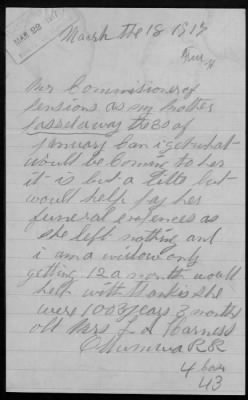 MAR 22
March the 18 1917
Mr Commisioner of
pensions as my mother
passed away the 30 of
january Can i get what
would be Coming to her
it is but a little but
would help pay her
funeral expences as
she left nothing and
i am a widow only
getting 12 a month would
help with thanks she
were 100 years 3 months
old Mrs
Ottumwa RR
4 box
43